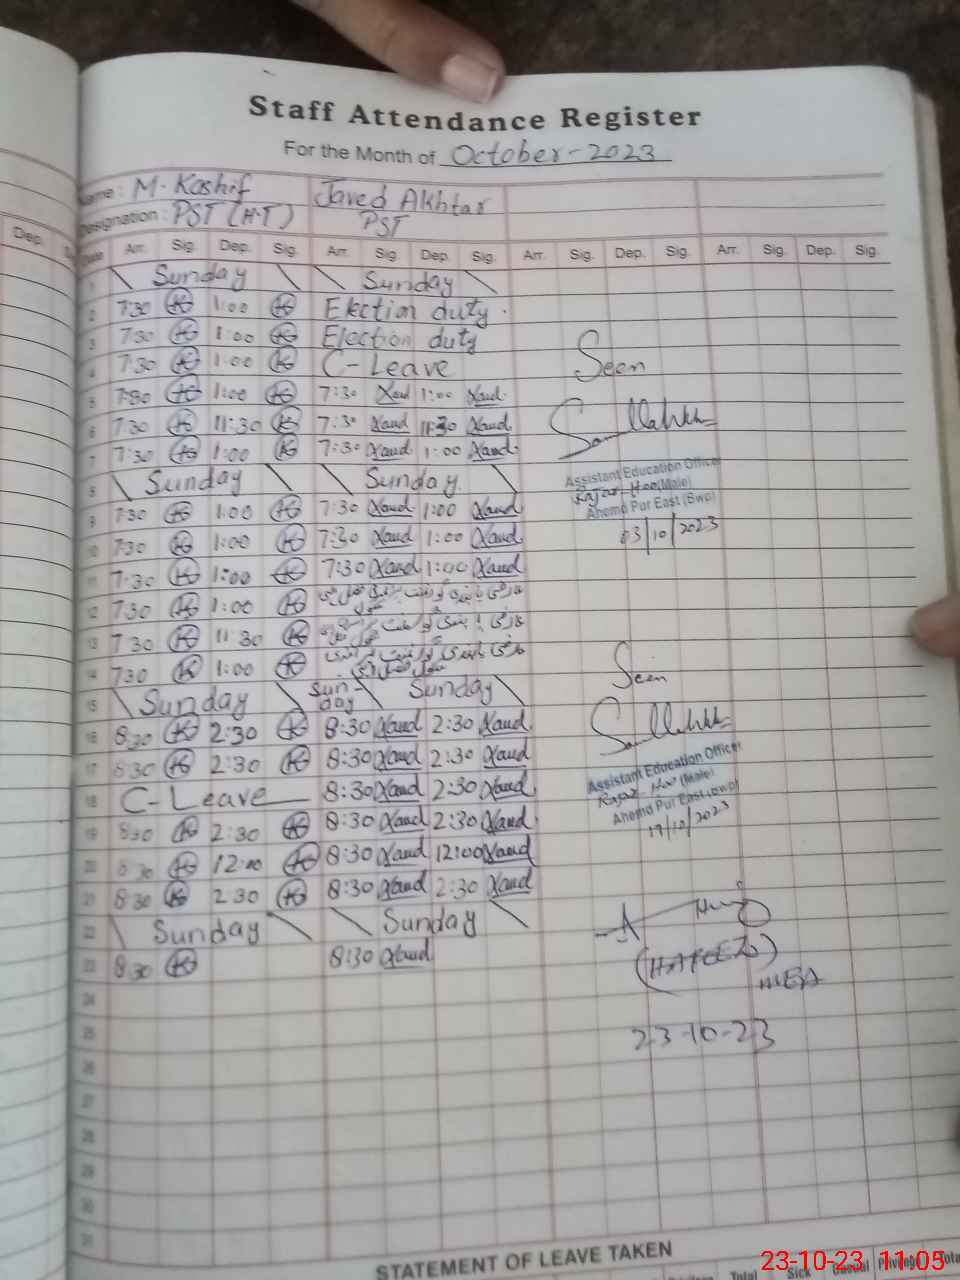 Staff Attendance Register
For the Month of October-2023
Name: M. Kashif Javed Akhtar
Designation: PST (H.T) PST
Dep.
Date Arr. Sig. Dep. Sig. Arr. Sig. Dep. Sig. Arr. Sig. Dep. Sig. Arr. Sig. Dep. Sig.
1 Sunday Sunday
2 7:30 1:00 Election duty
3 7:30 1:00 Election duty
4 7:30 1:00 C-Leave
Seen
5 7:30 1:00 7:30 1:00
6 7:30 11:30 7:30 11:30
7 7:30 1:00 7:30 1:00
8 Sunday Sunday
Assistant Education Officer
(Male)
Ahmed Pur East (Bwp)
03/10/2023
9 7:30 1:00 7:30 1:00
10 7:30 1:00 7:30 1:00
11 7:30 1:00 7:30 1:00
12 7:30 1:00
13 7:30 11:30
14 7:30 1:00
Seen
15 Sunday Sunday Sunday
16 8:30 2:30 8:30 2:30
17 8:30 2:30 8:30 2:30
18 C-Leave 8:30 2:30
Assistant Education Officer
(Male)
Ahmed Pur East (Bwp)
19/10/2023
19 8:30 2:30 8:30 2:30
20 8:30 12:00 8:30 12:00
21 8:30 2:30 8:30 2:30
22 Sunday Sunday
23 8:30 8:30
(HAFEEZ)
MEA
23-10-23
24
25
26
27
28
29
30
31
STATEMENT OF LEAVE TAKEN
Privilege Total Sick Casual Privilege Total
23-10-23 11:05